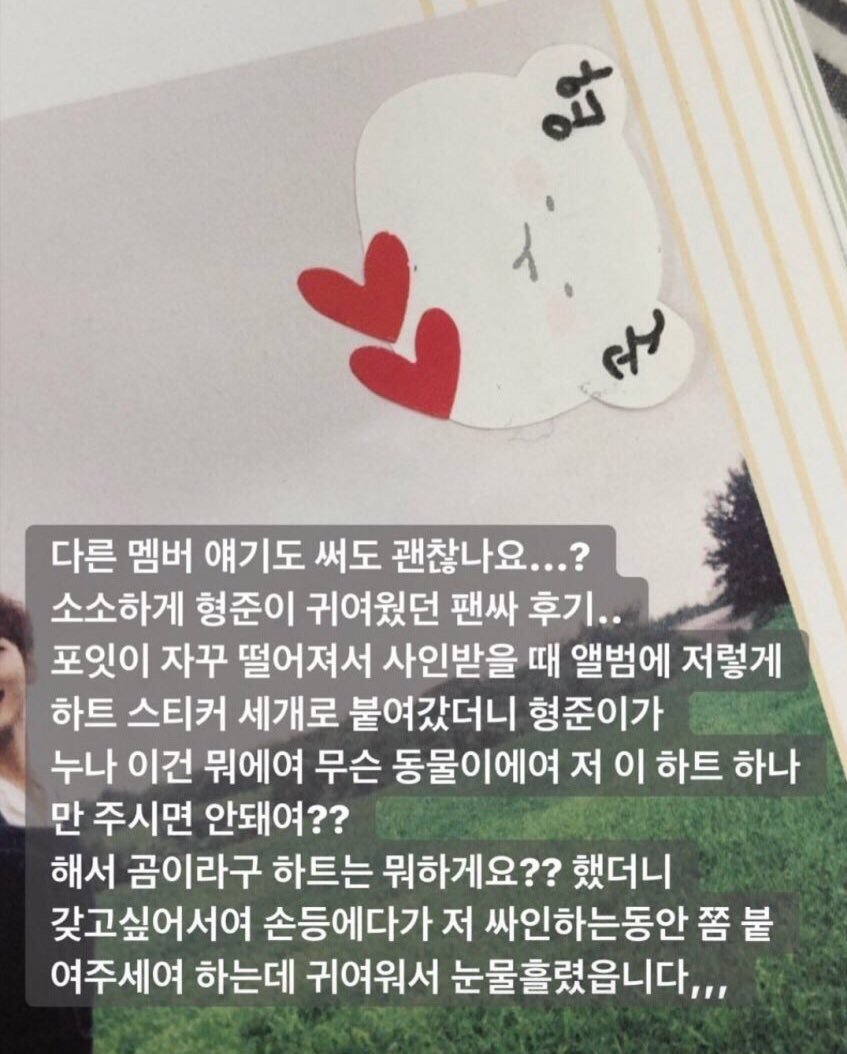 형
준
다른 멤버 얘기도 써도 괜찮나요...?
소소하게 형준이 귀여웠던 팬싸 후기..
포잇이 자꾸 떨어져서 사인받을 때 앨범에 저렇게
하트 스티커 세개로 붙여갔더니 형준이가
누나 이건 뭐에여 무슨 동물이에여 저 이 하트 하나
만 주시면 안돼여??
해서 곰이라구 하트는 뭐하게요?? 했더니
갖고싶어서여 손등에다가 저 싸인하는동안 쫌 붙
여주세여 하는데 귀여워서 눈물흘렸읍니다,,,